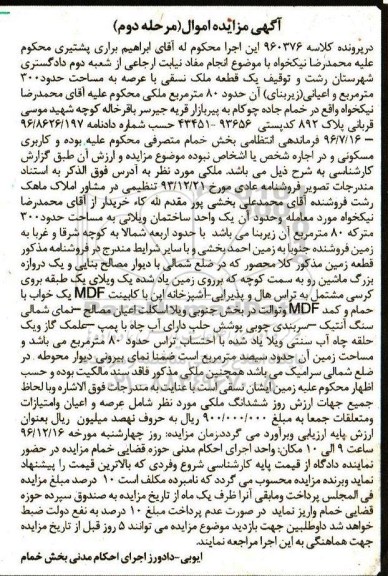 آگهی مزایده اموال(مرحله دوم)
درپرونده کلاسه ۹۶۰۳۷۶ این اجرا محکوم له آقای ابراهیم براری پشتیری محکوم
علیه محمدرضا نیکخواه با موضوع انجام مفاد نیابت ارجاعی از شعبه دوم دادگستری
شهرستان رشت و توقیف یک قطعه ملک نسقی با عرصه به مساحت حدود۳۰۰
مترمربع و اعیانی(زیربنای) آن حدود ۸۰ مترمربع ملکی محکوم علیه آقای محمدرضا
نیکخواه واقع در خمام جاده چوکام به پیربازار قریه جیرسر باقرخاله کوچه شهید موسی
قربانی پلاک ۸۹۲ کدپستی ۹۳۶۵۶ -۴۳۴۵۱ حسب شماره دادنامه ۹۶/۸۶۲۶/۱۹۷
– ۹۶/۷/۱۶ فرماندهی انتظامی بخش خمام متصرفی محکوم علیه بوده و کاربری
مسکونی و در اجاره شخص یا اشخاص نبوده موضوع مزایده و ارزش آن طبق گزارش
کارشناسی به شرح ذیل می باشد. ملکی مورد نظر به آدرس فوق الذکر به استناد
مندرجات تصویر فروشنامه عادی مورخ ۹۳/۱۲/۲۱ تنظیمی در مشاور املاک ماهک
رشت فروشنده آقای محمدعلی بخشی پور مقدم لله کاء خریدار از آقای محمدرضا
نیکخواه مورد معامله وحدود آن یک واحد ساختمان ویلائی به مساحت حدود۳۰۰
مترکه ۸۰ مترمربع آن زیربنا می باشد با حدود اربعه شمالا به کوچه شرقا و غربا به
زمین فروشنده جنوبا به زمین احمد بخشی و با سایر شرایط مندرج در فروشنامه مذکور
قطعه زمین مذکور کلا محصور که در ضلع شمالی با دیوار مصالح بنایی و یک دروازه
بزرگ ماشین رو به سمت کوچه که برروی زمین یاد شده یک ویلای یک طبقه بروی
کرسی مشتمل به تراس هال و پذیرایی –آشپزخانه اپن با کابینت MDF یک خواب با
حمام و کمد MDF وتوالت در بخش جنوبی ویلا اسکلت اعیان مصالح –نمای شمالی
سنگ آنتیک –سربندی چوبی پوشش حلب دارای آب چاه با پمپ –علمک گاز ویک
حلقه چاه آب سنتی ویلا یاد شده با احتساب تراس حدود ۸۰ مترمربع می باشد و
مساحت زمین آن حدود سیصد مترمربع است ضمنا نمای بیرونی دیوار محوطه در
ضلع شمالی سرامیک می باشد همچنین ملکی مذکور فاقد سند مالکیت بوده و حسب
اظهار محکوم علیه زمین ایشان نسق است با عنایت به مندرجات فوق الاشاره وبا لحاظ
جمیع جهات ارزش روز ششدانگ ملکی مورد نظر شامل عرصه و اعیان وامتیازات
ومتعلقات جمعا به مبلغ ۹۰۰/۰۰۰/۰۰۰ ریال به حروف نهصد میلیون ریال بعنوان
ارزش پایه ارزیابی وبرآورد می گرددزمان مزایده: روز چهارشنبه مورخه ۹۶/۱۲/۱۶
ساعت ۹ الی ۱۰ مکان: واحد اجرای احکام مدنی حوزه قضایی خمام مزایده در حضور
نماینده دادگاه از قیمت پایه کارشناسی شروع وفردی که بالاترین قیمت را پیشنهاد
نماید وبرنده مزایده محسوب می گردد که نامبرده مکلف است ۱۰ درصد مبلغ مزایده
فی المجلس پرداخت ومابقی آنرا ظرف یک ماه از تاریخ مزایده به صندوق سپرده حوزه
قضایی خمام واریز نماید در صورت عدم پرداخت مبلغ ۱۰ درصد به نفع دولت ضبط
خواهد شد داوطلبین جهت بازدید موضوع مزایده می توانند ۵ روز قبل از تاریخ مزایده
جهت هماهنگی به این اجرا مراجعه نمایند.
ایوبی-دادورز اجرای احکام مدنی بخش خمام